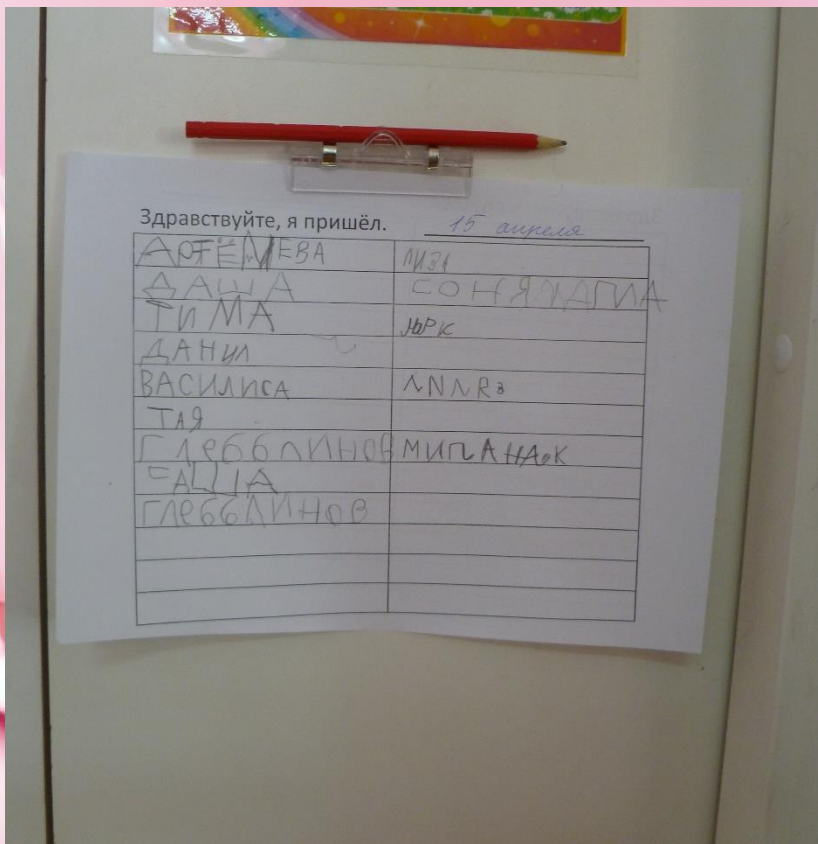 Здравствуйте, я пришёл. 15 апреля
АРТЁМ ЕВА ЛИЗА
ДАША СОНЯ
ТИМА
ДАНИЛ
ВАСИЛИСА
ТАЯ
ГЛЕБ БЛИНОВ
САША
ГЛЕБ БЛИНОВ